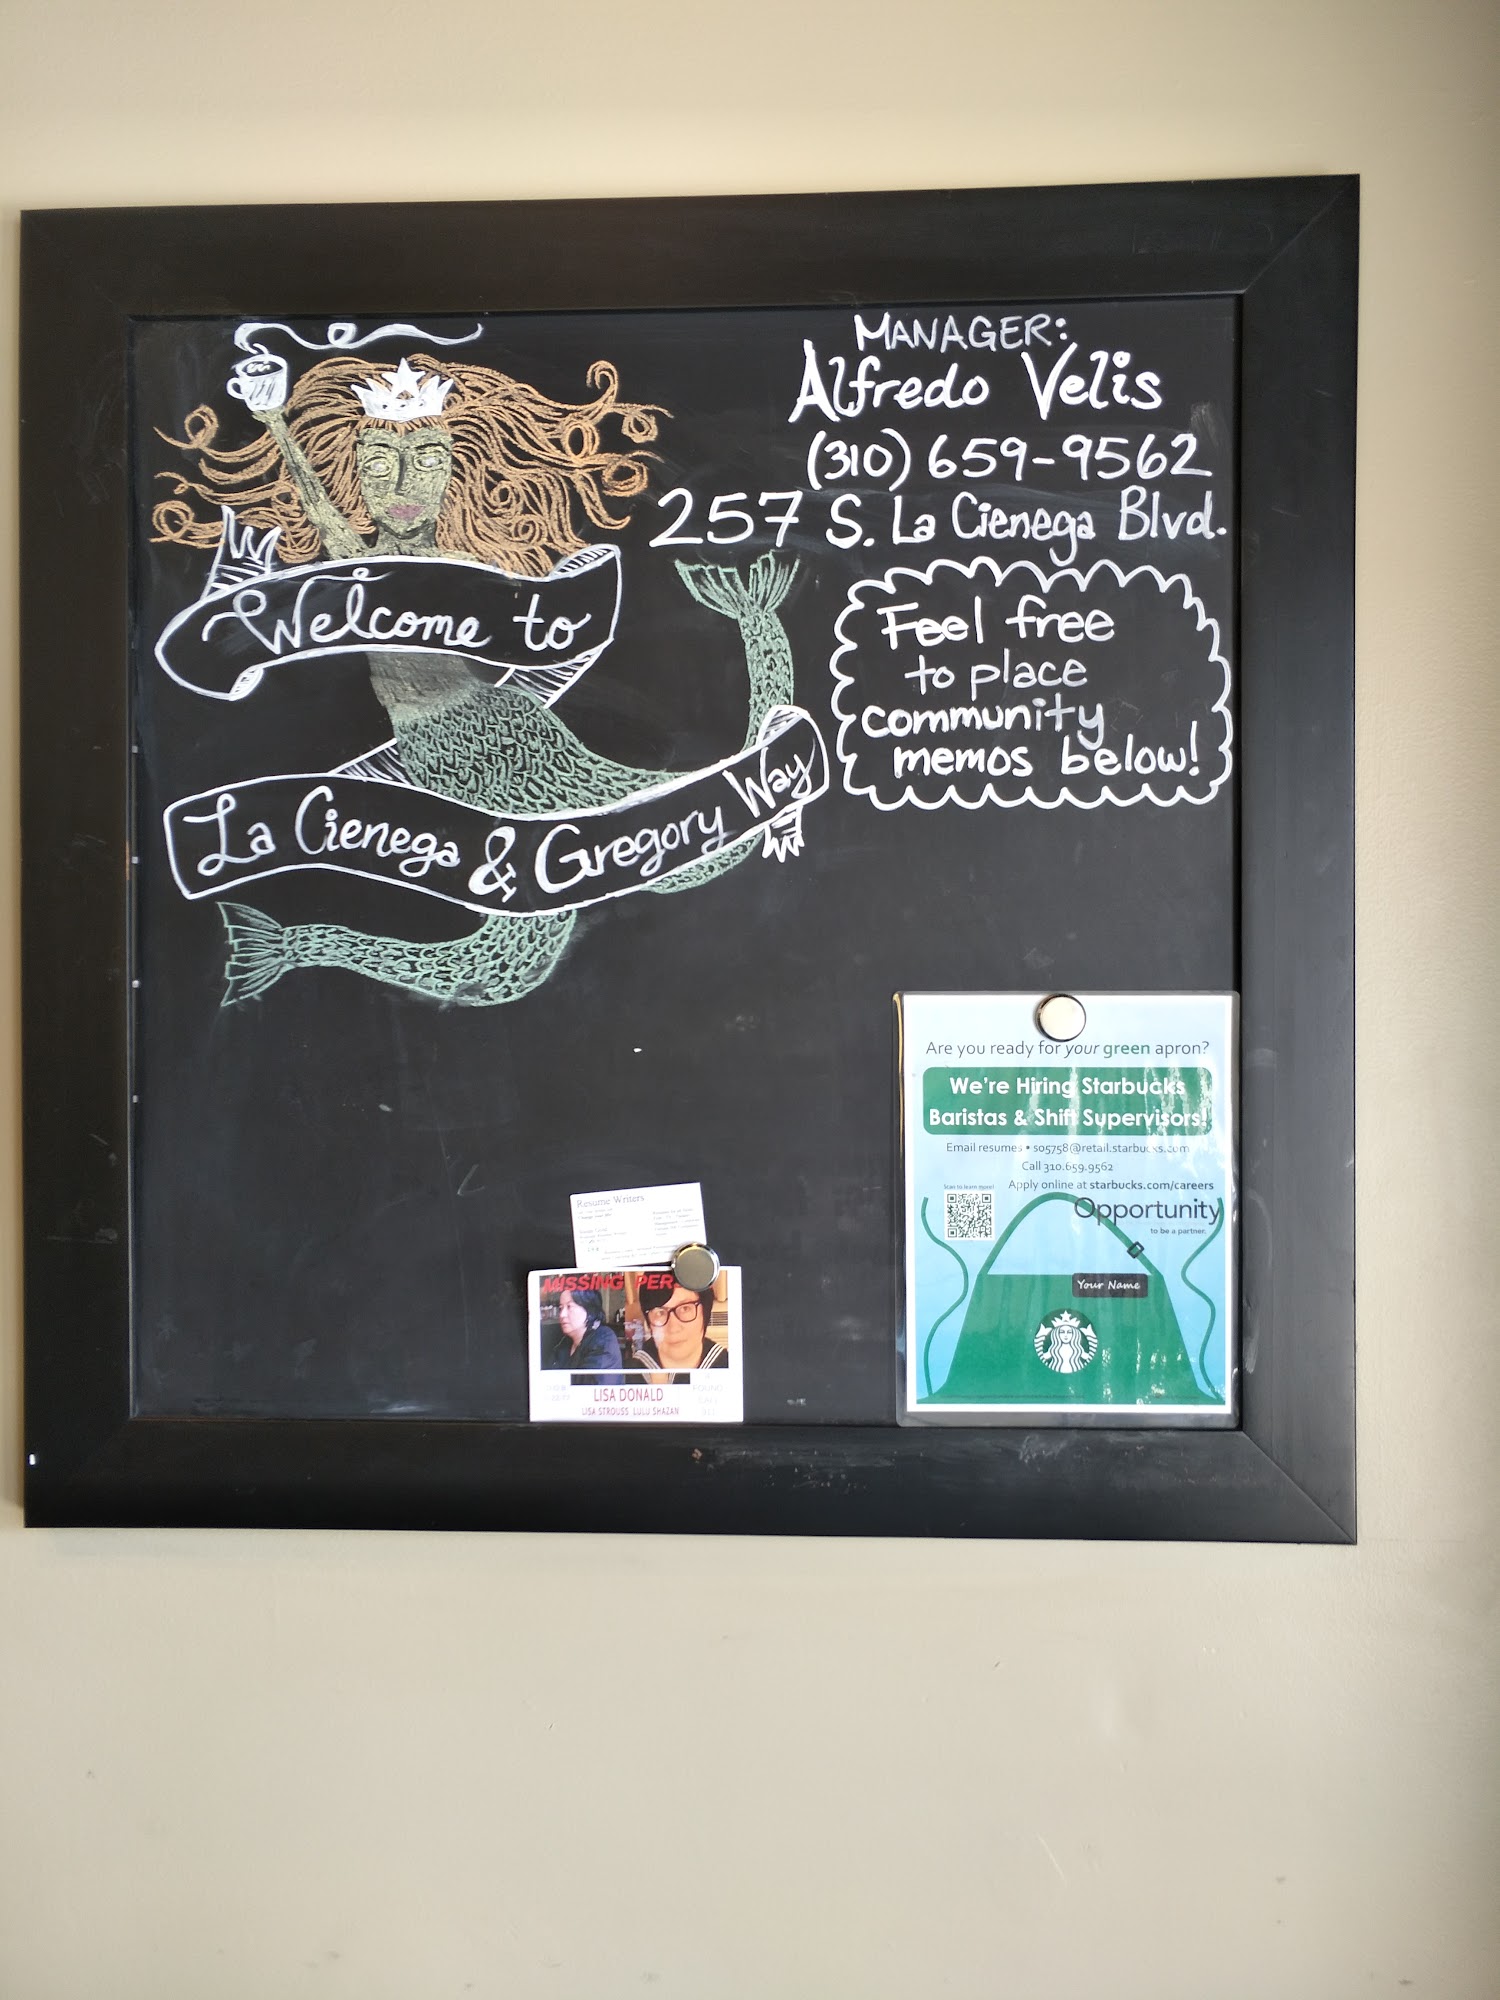 Welcome to
La Cienega & Gregory Way
MANAGER:
Alfredo Velis
(310) 659-9562
257 S. La Cienega Blvd.
Feel free
to place
community
memos below!
Are you ready for your green apron?
We're Hiring Starbucks
Baristas & Shift Supervisors!
Email resumes • s05758@retail.starbucks.com
Call 310.659.9562
Scan to learn more!
Apply online at starbucks.com/careers
Opportunity
to be a partner.
Your Name
Resume Writers
MISSING PERS
LISA DONALD
LISA STROUSS LULU SHAZAN